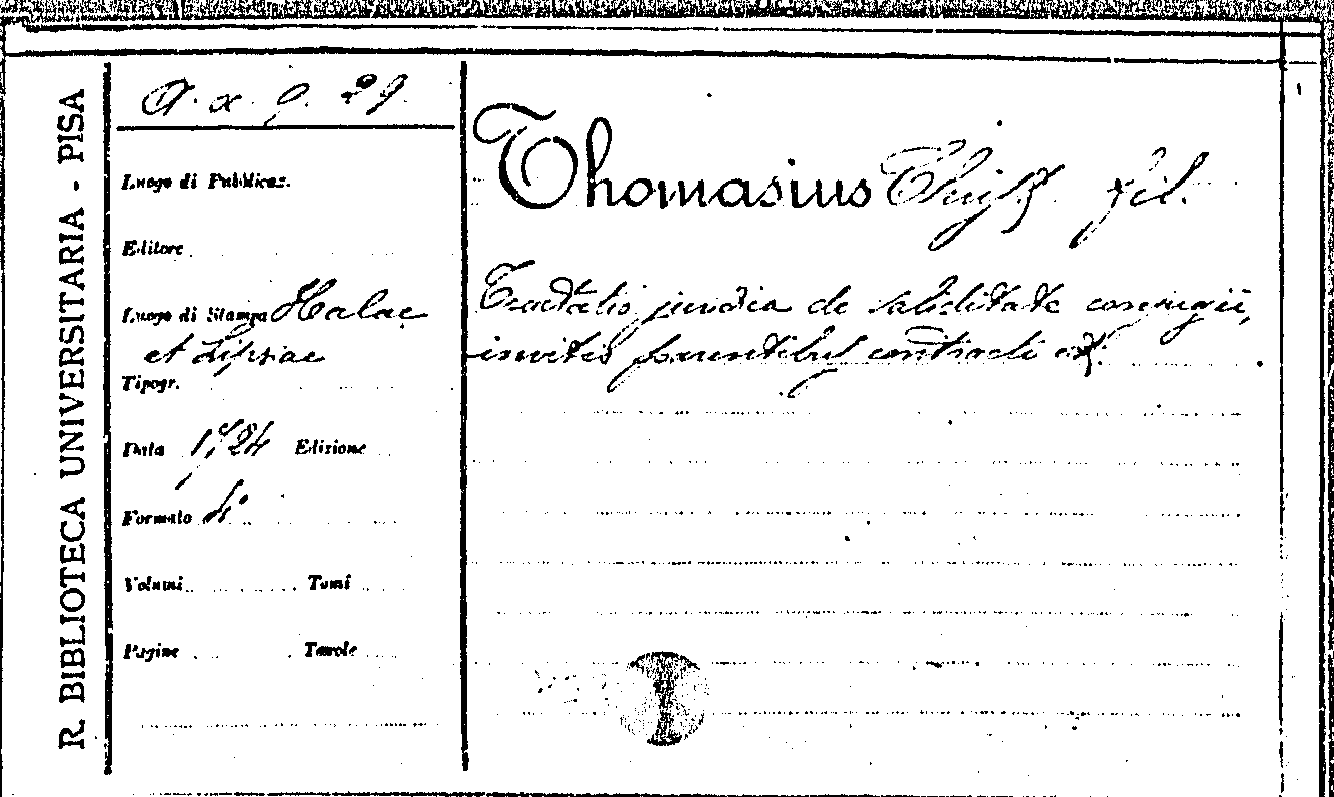 R. BIBLIOTECA UNIVERSITARIA - PISA
A. x. 9. 29.
Luogo di Pubblicaz.
Editore
Luogo di Stampa Halae
et Lipsiae
Tipogr.
Data 1724 Edizione
Formato 4°
Volumi Tomi
Pagine Tavole
Thomasius Christ. fil.
Tractatio juridica de validitate conjugii,
invitis parentibus contracti et.